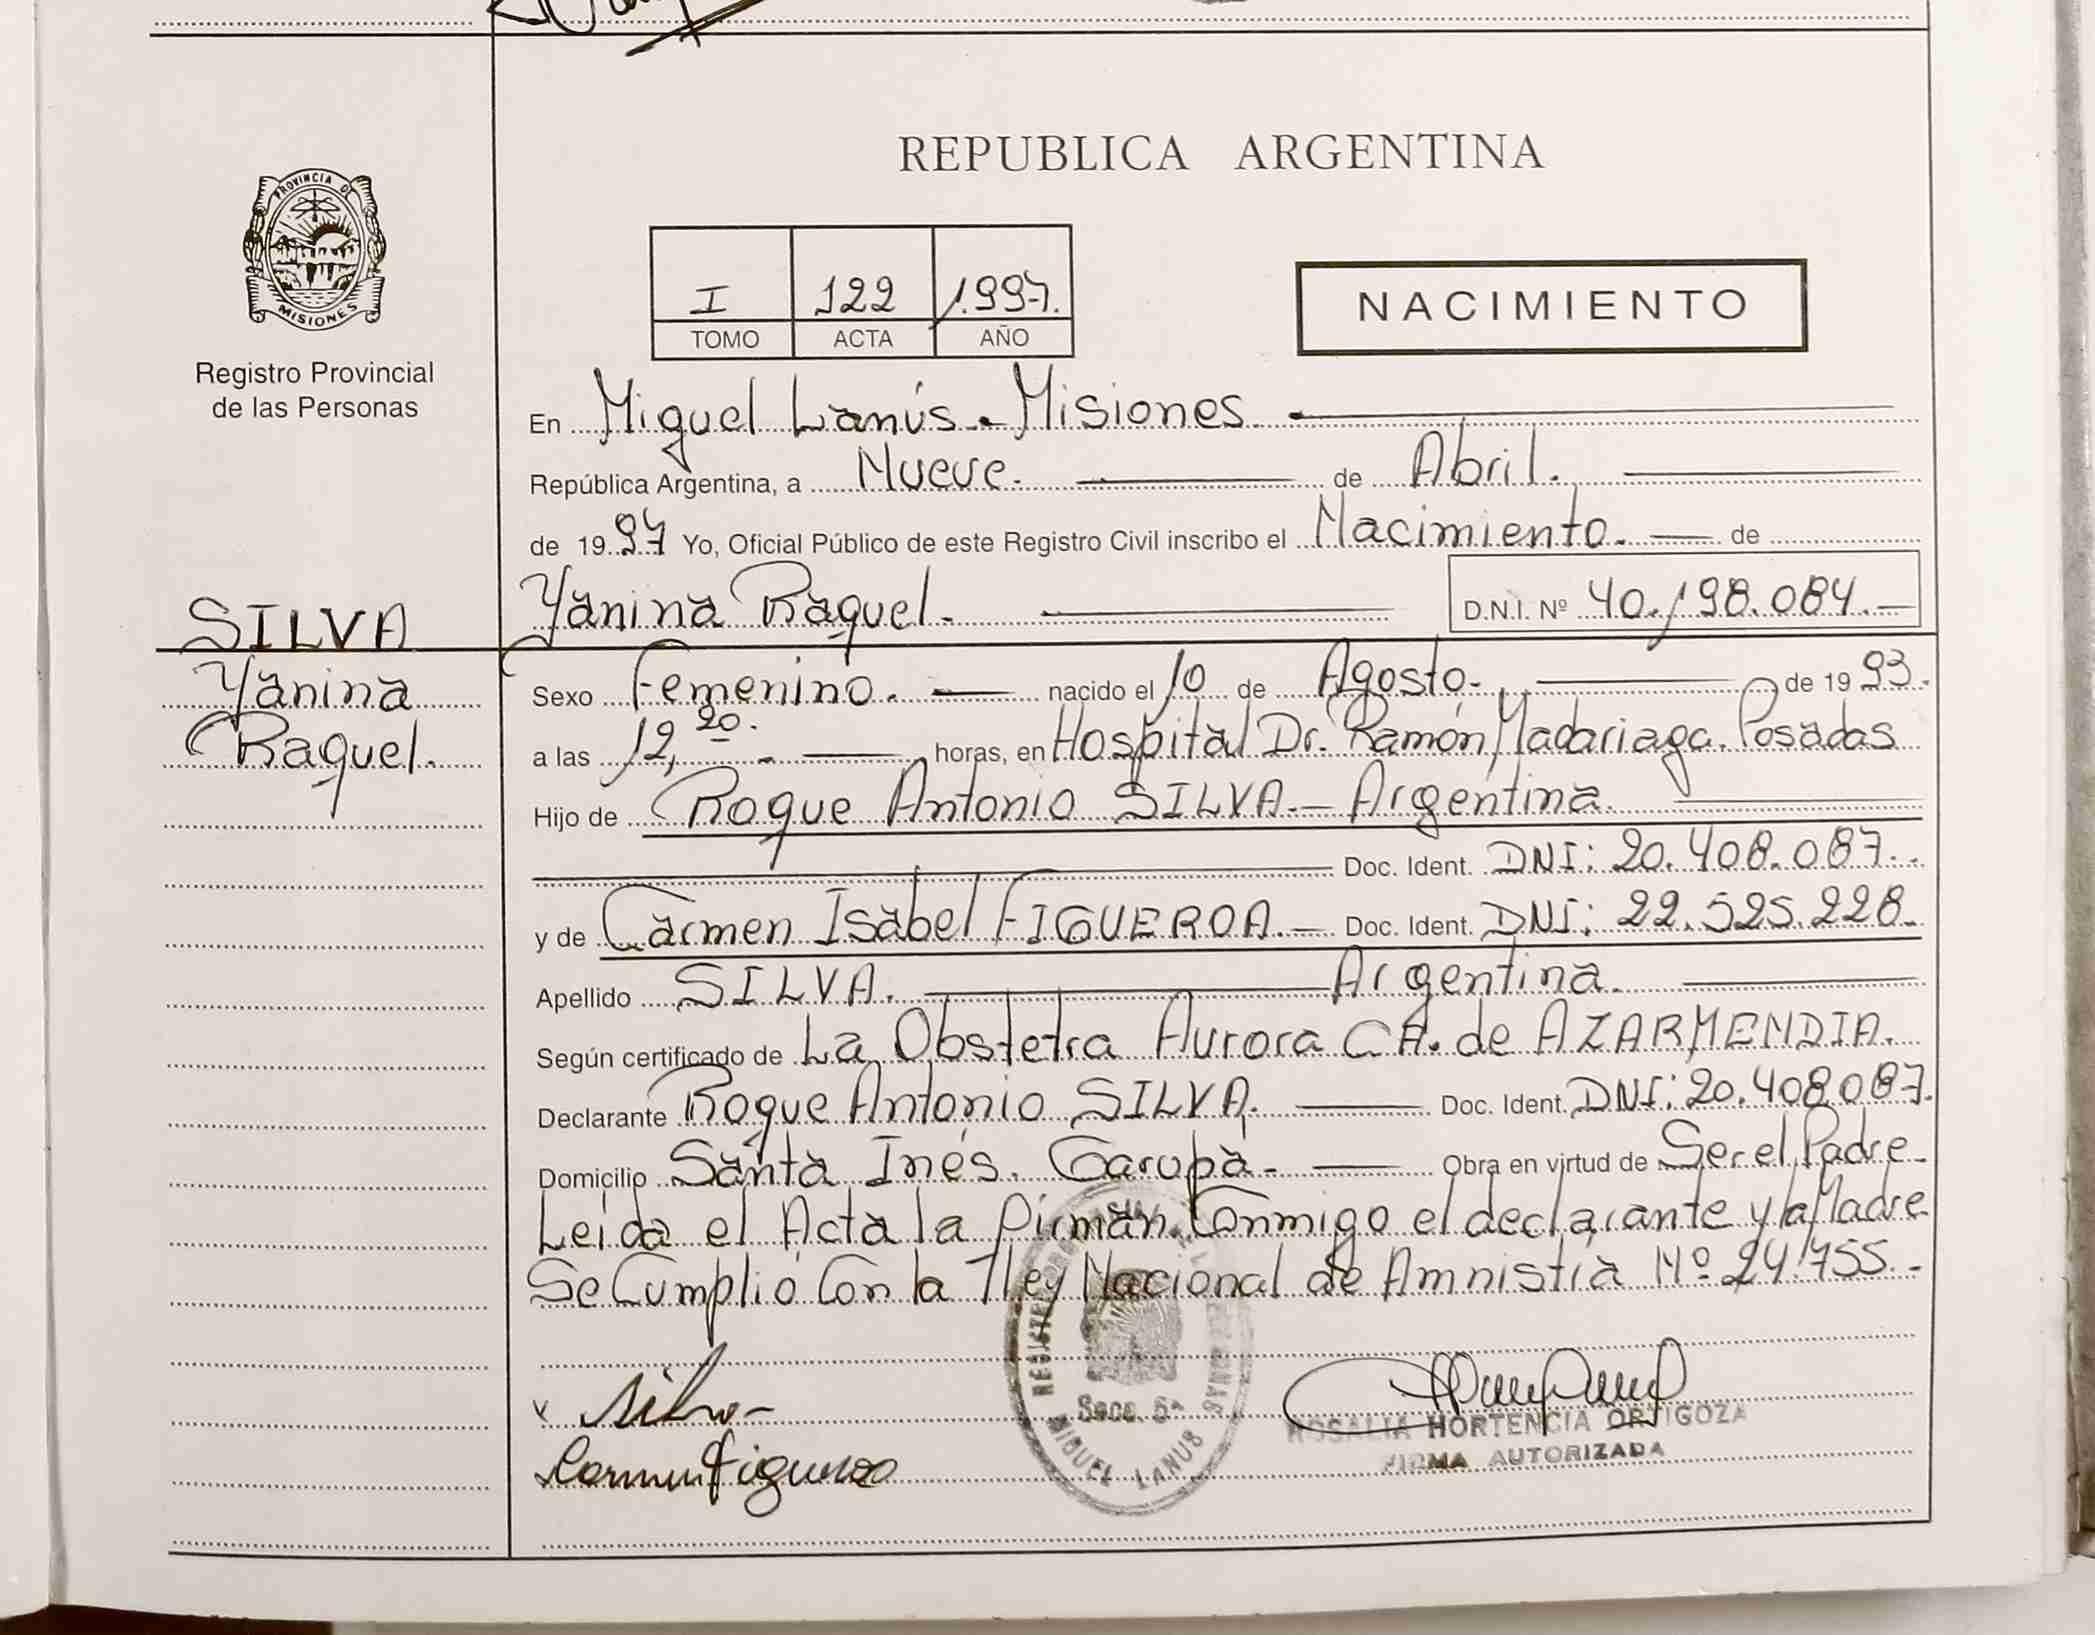 PROVINCIA DE
MISIONES
Registro Provincial
de las Personas
SILVA
Yanina
Raquel.
REPUBLICA ARGENTINA
I 122 1.997.
TOMO ACTA AÑO
NACIMIENTO
En Miguel Lanús. Misiones
República Argentina, a Nueve. de Abril.
de 19 97 Yo, Oficial Público de este Registro Civil inscribo el Nacimiento. de
Yanina Raquel. D.N.I. Nº 40.198.084.
Sexo Femenino. nacido el 10 de Agosto. de 19 93.
a las 12,20. horas, en Hospital Dr. Ramón Madariaga. Posadas
Hijo de Roque Antonio SILVA. Argentina.
Doc. Ident. DNI: 20.408.087.
y de Carmen Isabel FIGUEROA. Doc. Ident. DNI: 22.525.228.
Apellido SILVA. Argentina.
Según certificado de La Obstetra Aurora C A. de AZARMENDIA.
Declarante Roque Antonio SILVA. Doc. Ident. DNI: 20.408087.
Domicilio Santa Inés. Garupá. Obra en virtud de Ser el Padre.
Leída el Acta la firman Conmigo el declarante y la Madre
Se Cumplió Con la Ley Nacional de Amnistía Nº 24.755.
Silva
Carmen Figueroa
Secc. 5ª
MIGUEL LANUS
ROSALIA HORTENCIA ORTIGOZA
FIRMA AUTORIZADA